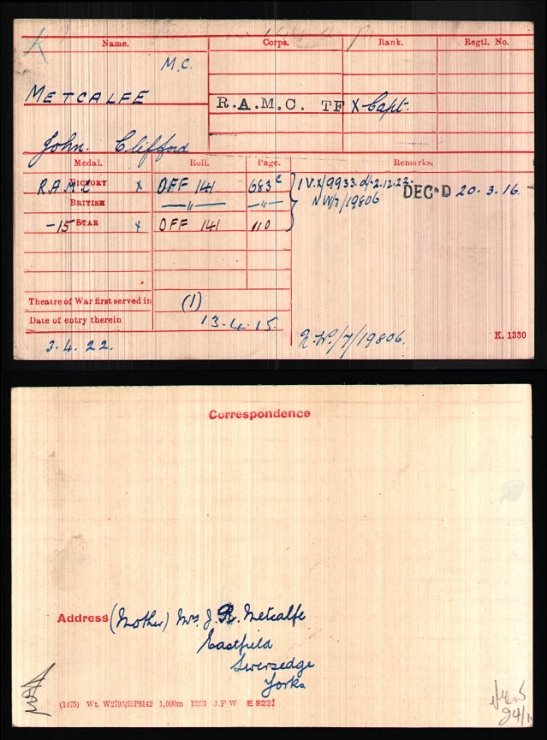 Name. Corps. Rank. Regtl. No.
M.C.
METCALFE R.A.M.C. TF X Capt.
John. Clifford
Medal. Roll. Page. Remarks.
R.A.M.C VICTORY X OFF 141 683c 1V.X/9933 d/-2.12.22. DEC.D 20.3.16.
BRITISH —"— —"— N W/7/19806
-15 STAR X OFF 141 110
Theatre of War first served in (1)
Date of entry therein 13.4.15.
3.4.22. N.W./7/19806. K. 1380
Correspondence
Address (Mother) Mrs J. R. Metcalfe
Eastfield
Liversedge
Yorks
(1475) Wt. W2793/RP8142 1,000m 12/21 J.F W E 822